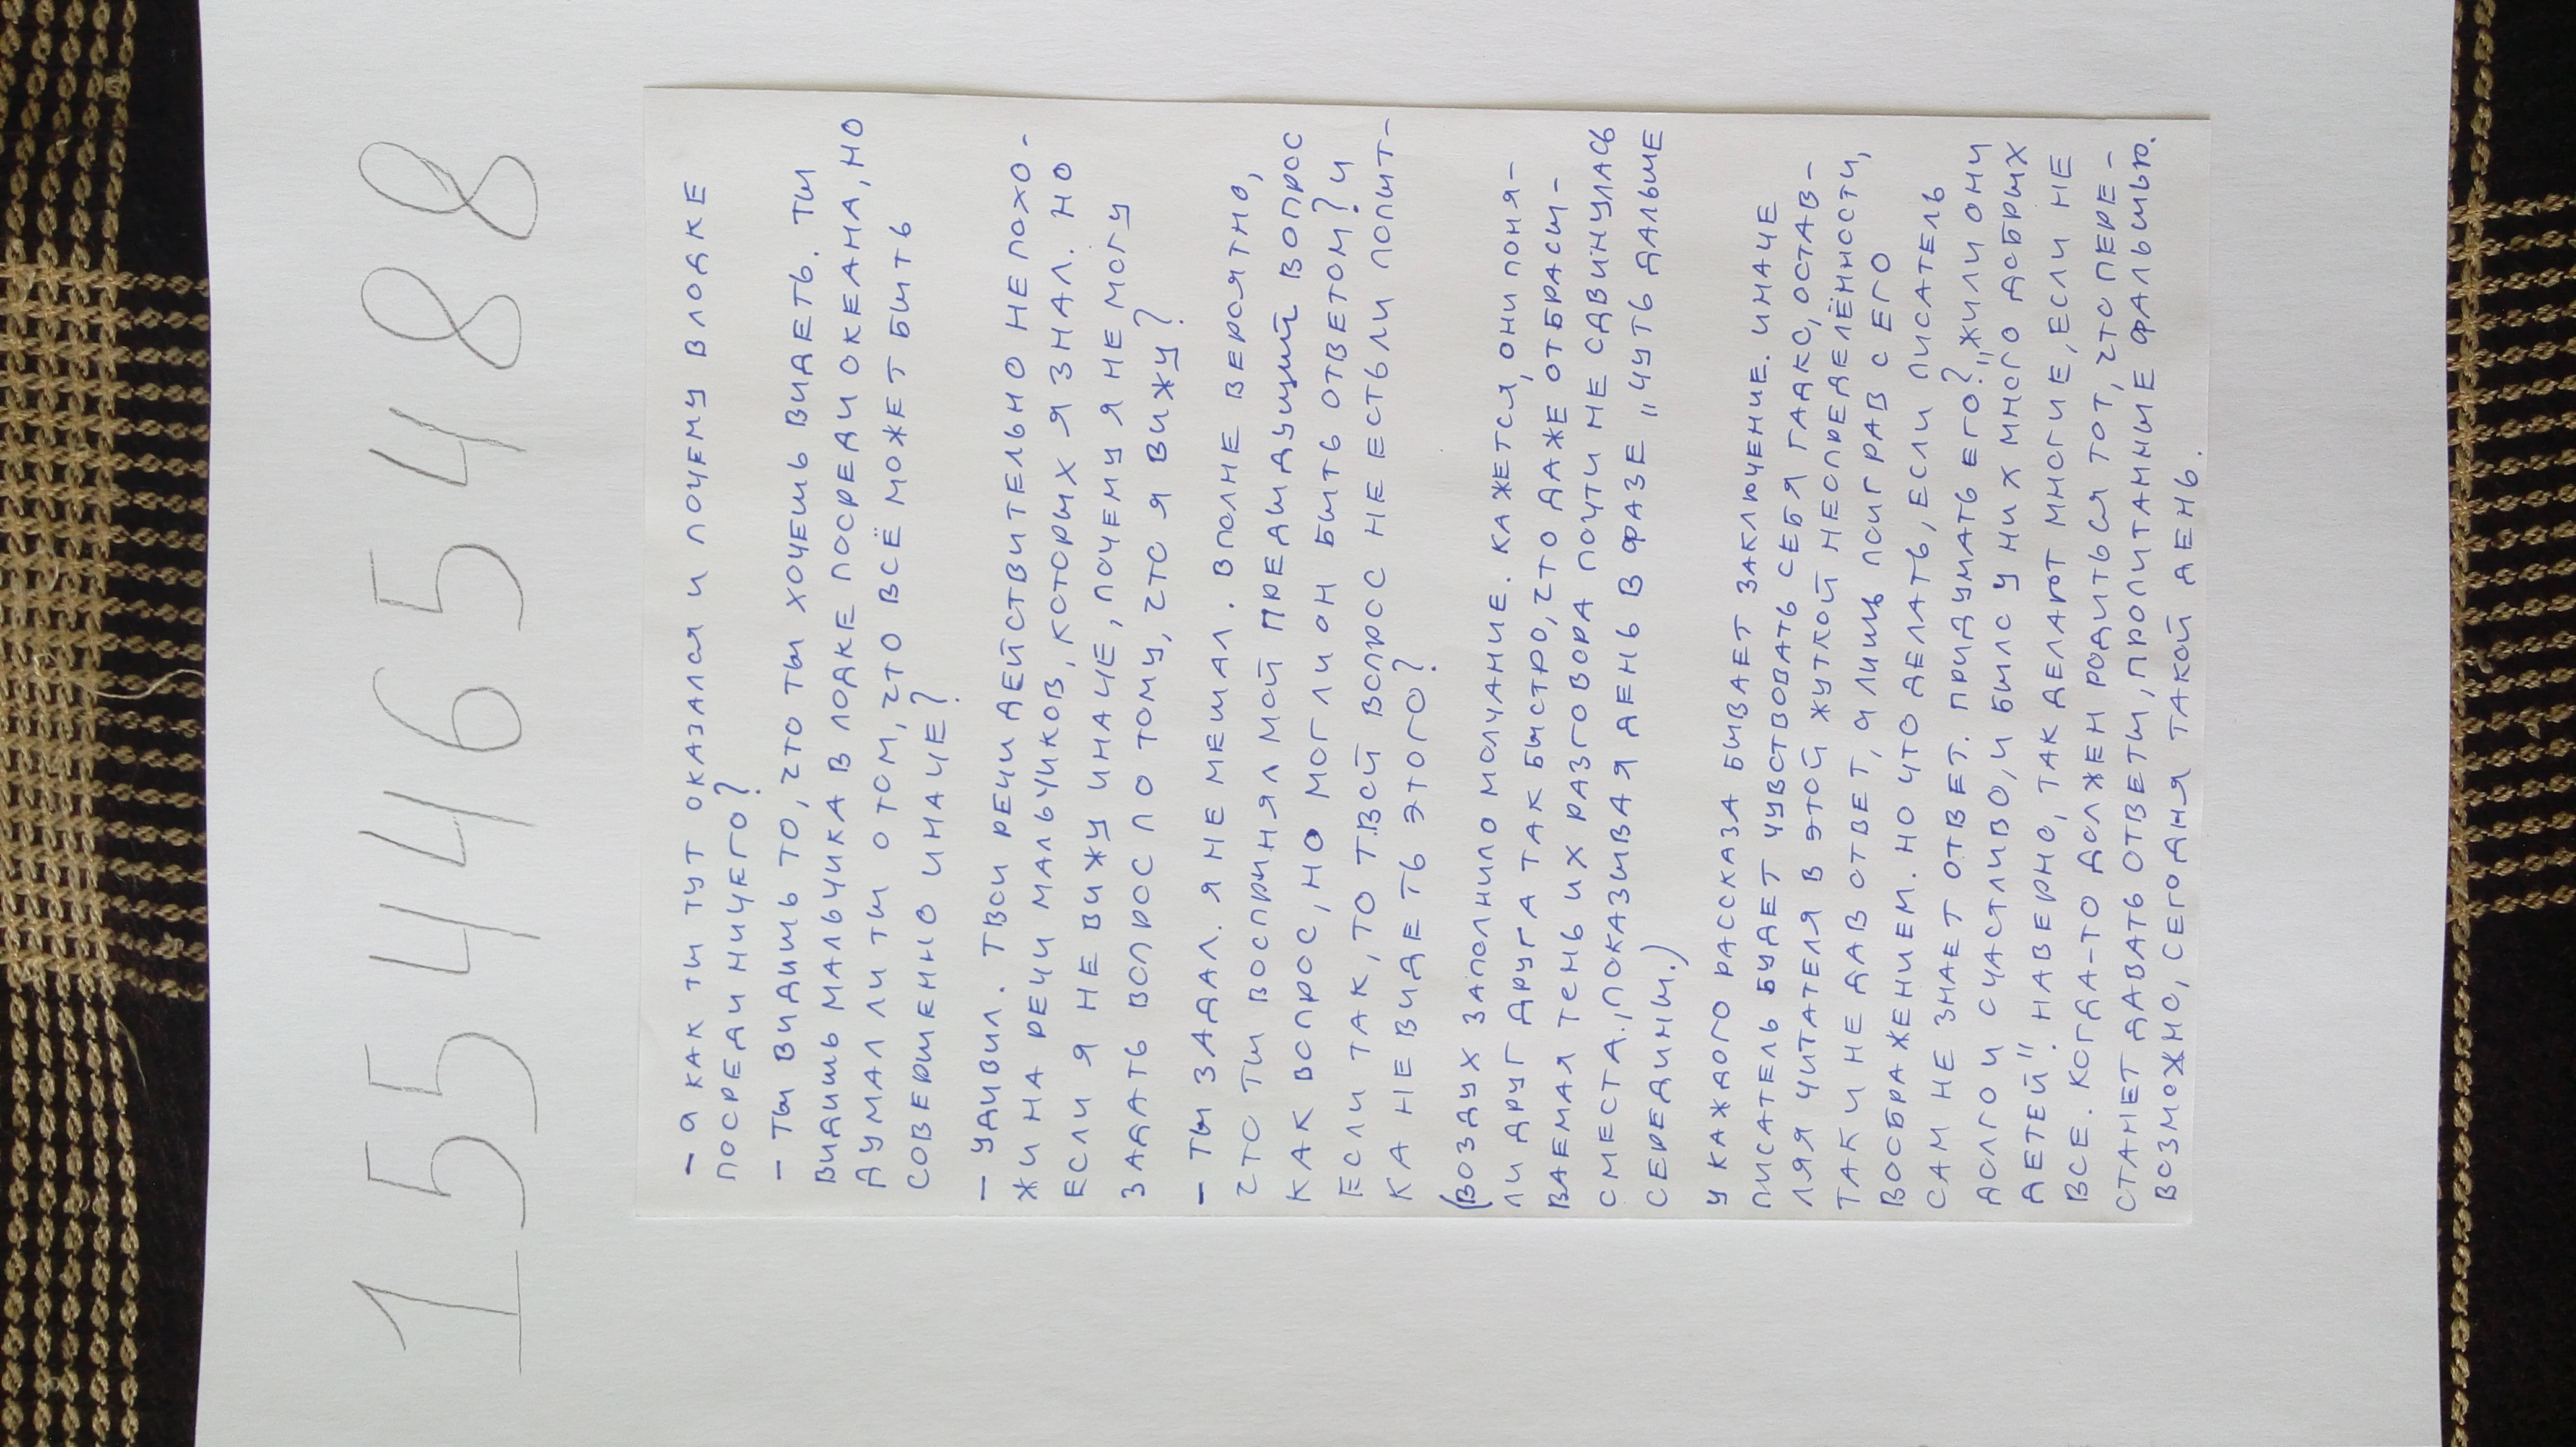 155446548 8
- А КАК ТЫ ТУТ ОКАЗАЛСЯ И ПОЧЕМУ В ЛОДКЕ
ПОСРЕДИ НИЧЕГО?
- ТЫ ВИДИШЬ ТО, ЧТО ТЫ ХОЧЕШЬ ВИДЕТЬ. ТЫ
ВИДИШЬ МАЛЬЧИКА В ЛОДКЕ ПОСРЕДИ ОКЕАНА, НО
ДУМАЛ ЛИ ТЫ О ТОМ, ЧТО ВСЁ МОЖЕТ БЫТЬ
СОВЕРШЕННО ИНАЧЕ?
- УДИВИЛ. ТВОИ РЕЧИ ДЕЙСТВИТЕЛЬНО НЕ ПОХО-
ЖИ НА РЕЧИ МАЛЬЧИКОВ, КОТОРЫХ Я ЗНАЛ. НО
ЕСЛИ Я НЕ ВИЖУ ИНАЧЕ, ПОЧЕМУ Я НЕ МОГУ
ЗАДАТЬ ВОПРОС ПО ТОМУ, ЧТО Я ВИЖУ?
- ТЫ ЗАДАЛ. Я НЕ МЕШАЛ. ВПОЛНЕ ВЕРОЯТНО,
ЧТО ТЫ ВОСПРИНЯЛ МОЙ ПРЕДЫДУЩИЙ ВОПРОС
КАК ВОПРОС, НО МОГ ЛИ ОН БЫТЬ ОТВЕТОМ? И
ЕСЛИ ТАК, ТО ТВОЙ ВОПРОС НЕ ЕСТЬ ЛИ ПОПЫТ-
КА НЕ ВИДЕТЬ ЭТОГО?
(ВОЗДУХ ЗАПОЛНИЛО МОЛЧАНИЕ. КАЖЕТСЯ, ОНИ ПОНЯ-
ЛИ ДРУГ ДРУГА ТАК БЫСТРО, ЧТО ДАЖЕ ОТБРАСЫ-
ВАЕМАЯ ТЕНЬ ИХ РАЗГОВОРА ПОЧТИ НЕ СДВИНУЛАСЬ
С МЕСТА, ПОКАЗЫВАЯ ДЕНЬ В ФАЗЕ „ЧУТЬ ДАЛЬШЕ
СЕРЕДИНЫ.)
У КАЖДОГО РАССКАЗА БЫВАЕТ ЗАКЛЮЧЕНИЕ. ИНАЧЕ
ПИСАТЕЛЬ БУДЕТ ЧУВСТВОВАТЬ СЕБЯ ГАДКО, ОСТАВ-
ЛЯЯ ЧИТАТЕЛЯ В ЭТОЙ ЖУТКОЙ НЕОПРЕДЕЛЁННОСТИ,
ТАК И НЕ ДАВ ОТВЕТ, А ЛИШЬ ПОИГРАВ С ЕГО
ВООБРАЖЕНИЕМ. НО ЧТО ДЕЛАТЬ, ЕСЛИ ПИСАТЕЛЬ
САМ НЕ ЗНАЕТ ОТВЕТ. ПРИДУМАТЬ ЕГО? „ЖИЛИ ОНИ
ДОЛГО И СЧАСТЛИВО, И БЫЛО У НИХ МНОГО ДОБРЫХ
ДЕТЕЙ". НАВЕРНО, ТАК ДЕЛАЮТ МНОГИЕ, ЕСЛИ НЕ
ВСЕ. КОГДА-ТО ДОЛЖЕН РОДИТЬСЯ ТОТ, ЧТО ПЕРЕ-
СТАНЕТ ДАВАТЬ ОТВЕТЫ, ПРОПИТАННЫЕ ФАЛЬШЬЮ.
ВОЗМОЖНО, СЕГОДНЯ ТАКОЙ ДЕНЬ.